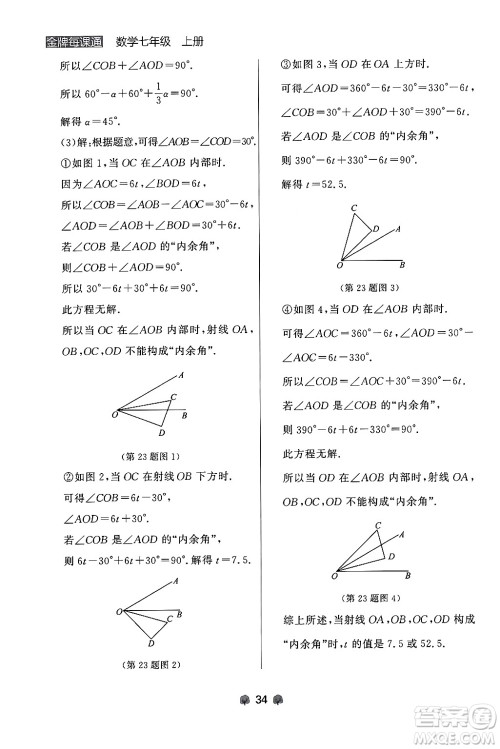 金牌每课通 数学七年级 上册
所以∠COB+∠AOD=90°.
所以 60°-α+60°+1/3α=90°.
解得 α=45°.
(3)解:根据题意,可得∠AOB=∠COD=30°.
①如图 1,当 OC 在∠AOB 内部时.
因为∠AOC=6t,∠BOD=6t,
所以∠COB=30°-6t,
所以∠AOD=30°+6t.
若∠COB 与∠AOD 为“内余角”,
则∠COB+∠AOD=90°.
所以 30°-6t+30°+6t=90°.
此方程无解.
所以当 OC 在∠AOB 内部时,射线 OA,
OB,OC,OD 不能构成“内余角”.
A
C
O
B
D
(第 23 题图 1)
②如图 2,当 OC 在射线 OB 下方时.
可得∠COB=6t-30°,
∠AOD=6t+30°.
若∠COB 与∠AOD 为“内余角”,
所以 6t-30°+6t+30°=90°. 解得 t=7.5.
A
O
B
C
D
(第 23 题图 2)
③如图 3,当 OC 在射线 OA 上方时.
可得∠COA=360°-6t,
所以∠COB=∠AOC+30°=390°-6t.
所以∠AOD=∠AOC-30°=330°-6t.
若∠COB 与∠AOD 是“内余角”,
则 390°-6t+330°-6t=90°.
解得 t=52.5.
C
D
A
O
B
(第 23 题图 3)
④如图 4,当 OD 在∠AOB 内部时.
可得∠COA=360°-6t,
所以∠COB=∠AOC+30°=390°-6t,
所以∠AOD=30°-∠AOC=-330°+6t.
若∠COB 与∠AOD 是“内余角”,
则 390°-6t-330°+6t=90°.
此方程无解.
所以当 OD 在∠AOB 内部时,射线 OA,
OB,OC,OD 不能构成“内余角”.
C
A
D
O
B
(第 23 题图 4)
综上所述,当射线 OA,OB,OC,OD 构成
“内余角”时,t 的值是 7.5 或 52.5.
34
答案圈